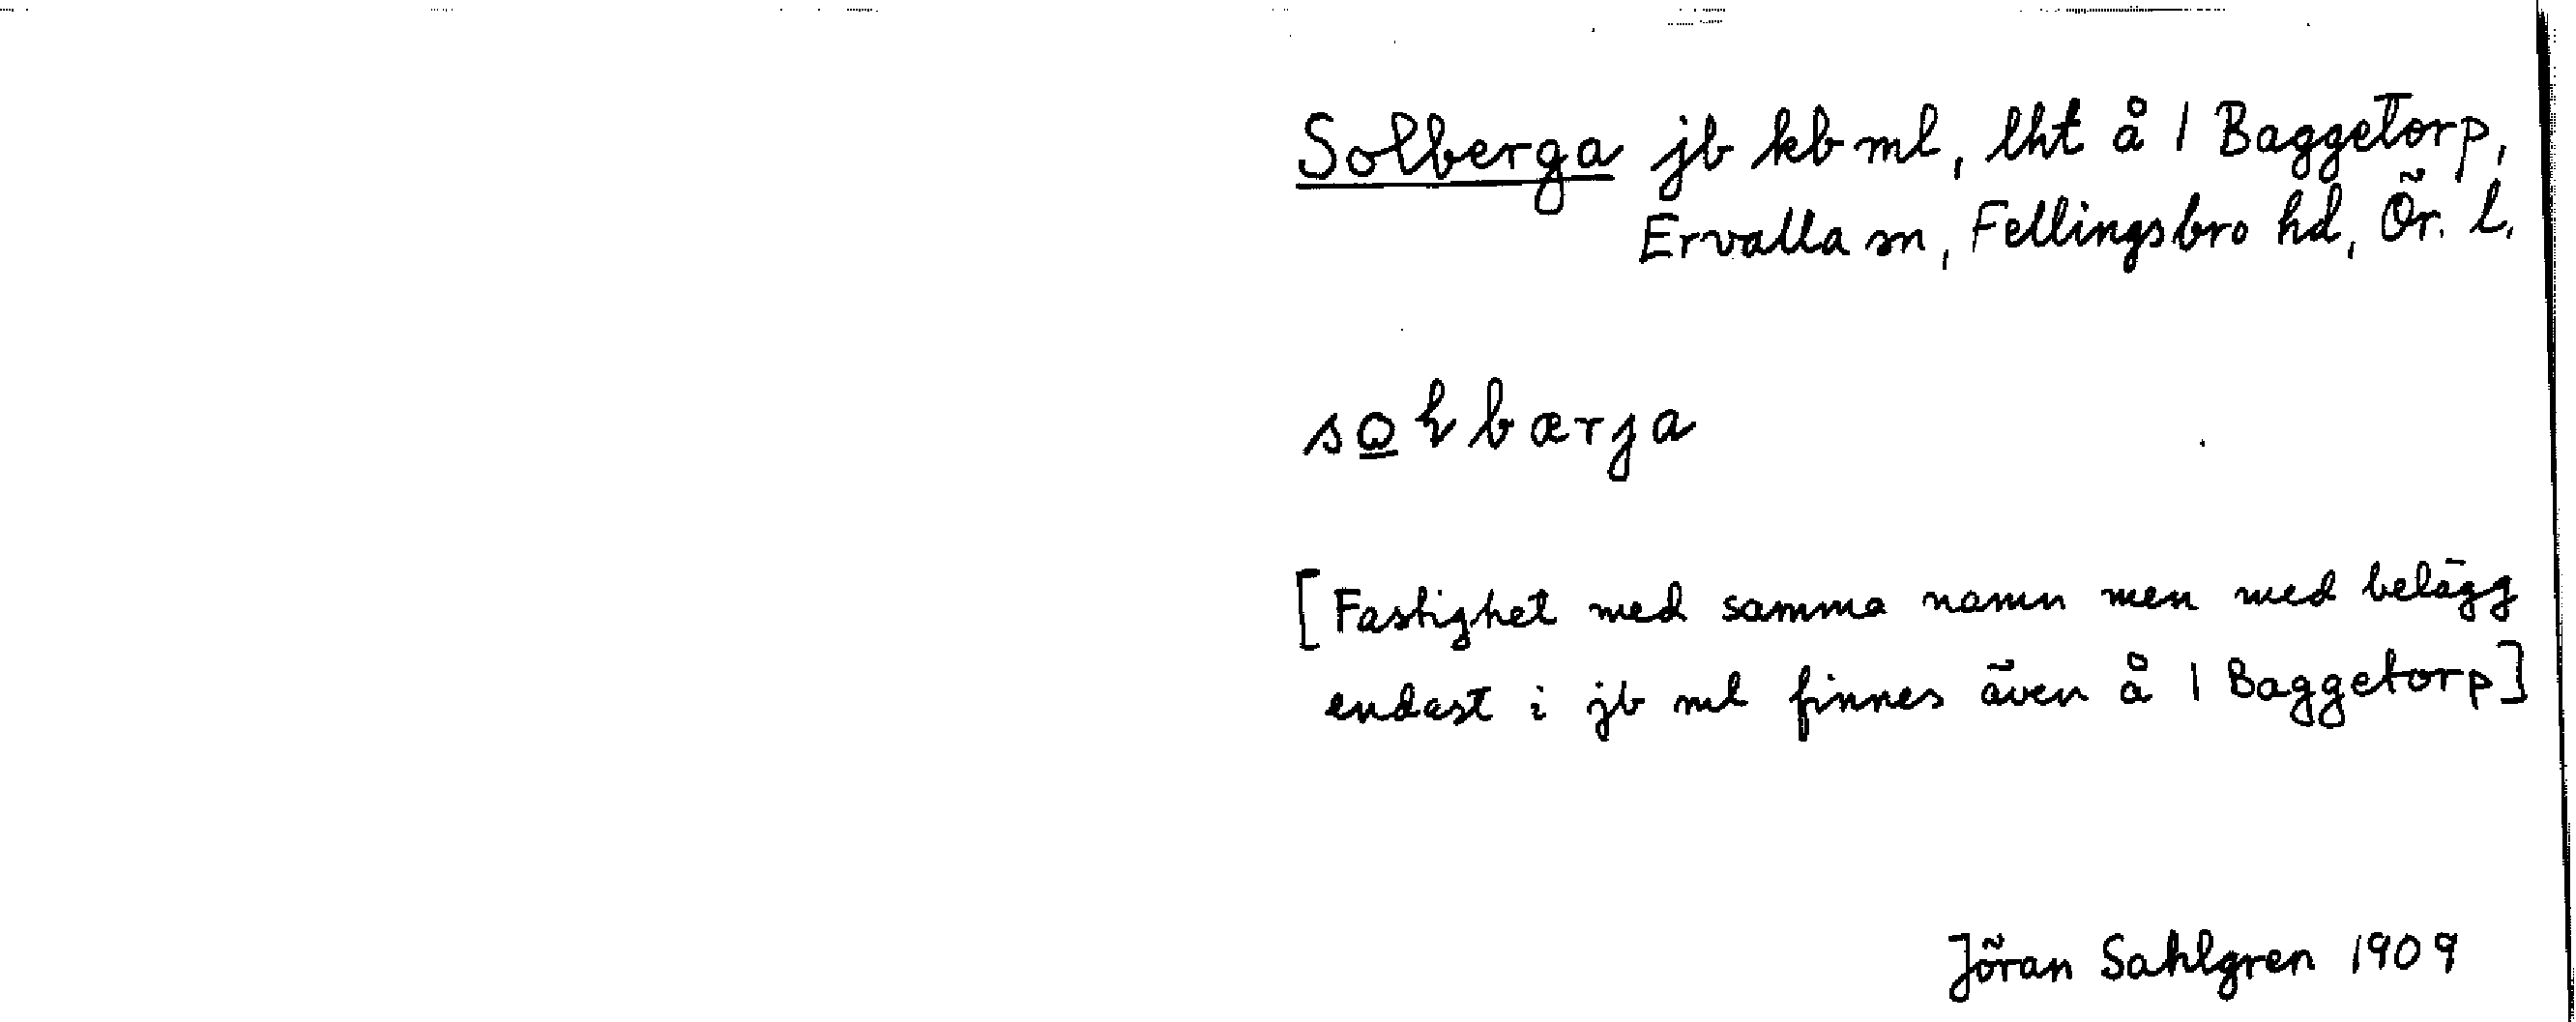 Solberga jb kb ml, lht å 1 Baggetorp,
Ervalla sn, Fellingsbro hd, Ör. l.
[Fastighet med samma namn men med belägg
endast i jb ml finnes även å 1 Baggetorp]
Jöran Sahlgren 1909